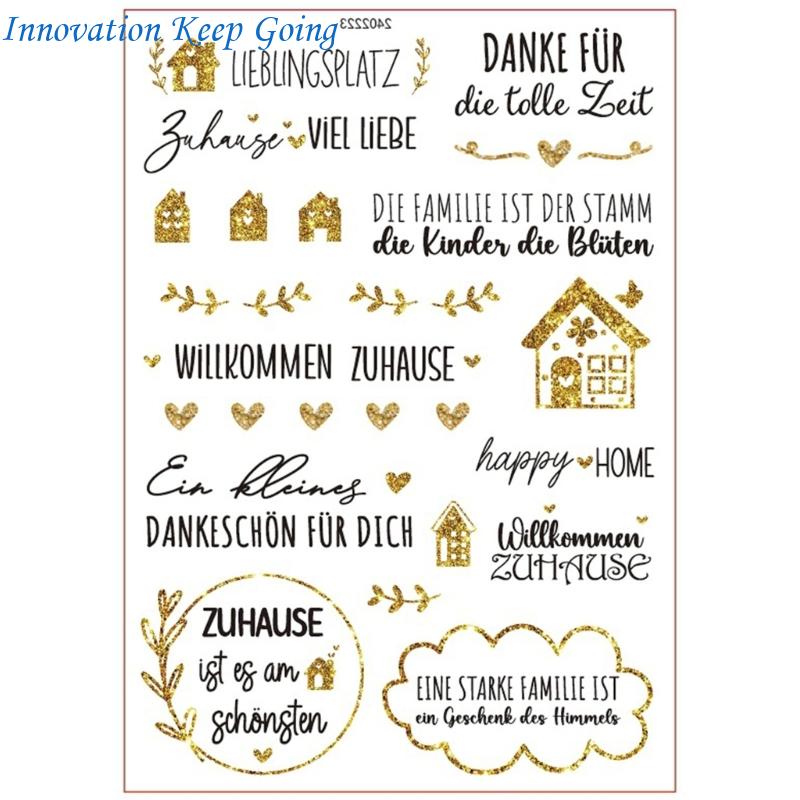 Innovation Keep Going
2402223
LIEBLINGSPLATZ
DANKE FÜR
die tolle Zeit
Zuhause VIEL LIEBE
DIE FAMILIE IST DER STAMM
die Kinder die Blüten
WILLKOMMEN ZUHAUSE
happy HOME
Ein kleines
DANKESCHÖN FÜR DICH
Willkommen
ZUHAUSE
ZUHAUSE
ist es am
schönsten
EINE STARKE FAMILIE IST
ein Geschenk des Himmels